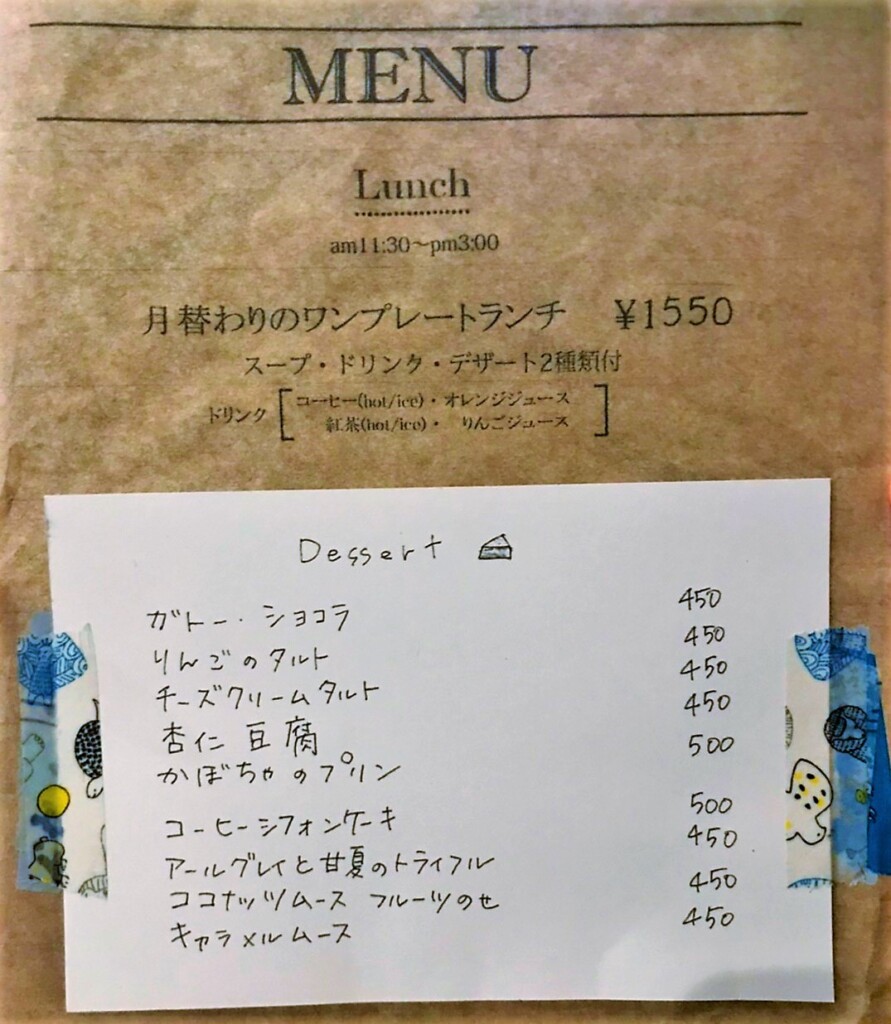 MENU
Lunch
am11:30～pm3:00
月替わりのワンプレートランチ ¥1550
スープ・ドリンク・デザート2種類付
ドリンク [コーヒー(hot/ice)・オレンジジュース
紅茶(hot/ice)・ りんごジュース]
Dessert
ガトー・ショコラ 450
りんごのタルト 450
チーズクリームタルト 450
杏仁豆腐 450
かぼちゃのプリン 500
コーヒーシフォンケーキ 500
アールグレイと甘夏のトライフル 450
ココナッツムース フルーツのせ 450
キャラメルムース 450